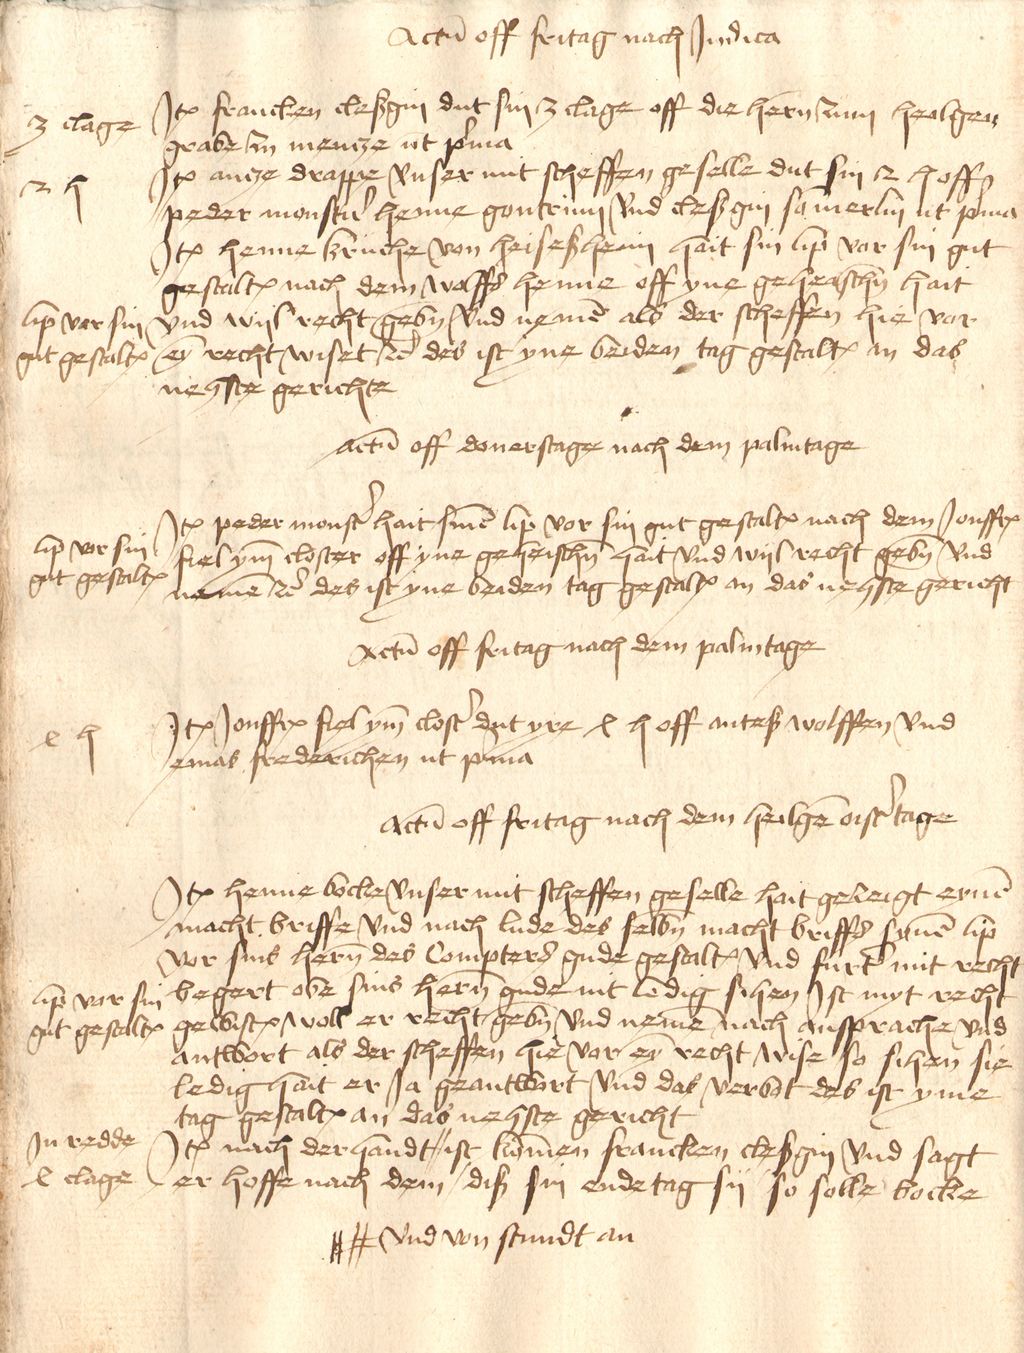 Actu͂ off fritag nach Judica
3 clage
Itʒ francken cleßgin dut sin 3 clage off die hern͂ zum heilgen
grabe zu mencze ut p͂ma
2 h
Itʒ ancze drappe unser mit scheffen geselle dut sin 2 h off
peder monster henne gontrum und cleßgin sa͂merlin ut p͂ma
Itʒ henne von heiseßheim hait sin lip vor sin gut
gestaltʒ nach dem wolffs henne off yne geheischn͂ hait
lip vor sin
und wijl recht gebn͂ und neme͂ als der scheffen hie vor
gut gestaltʒ
ey͂ recht wiset ꝛc des ist yne beiden tag gestaltʒ an das
nehste gerichte
Actu͂ off donerstage nach dem palmtage
Itʒ peder monster hait sine͂ lip vor sin gut gestaltʒ nach dem Jonffrʒ
lip vor sin
fiel ym͂ closter off yne geheischn͂ hait und wijl recht gebn͂ und
gut gestaltʒ
neme͂ ꝛc des ist yne beiden tag gestaltʒ an das nehste gericht
Actu͂ off fritag nach dem palmtage
h
Itʒ Jonffrʒ fiel ym͂ closter dut yre h off anteß wolffen und
emas frederichen ut p͂ma
Actu͂ off fritag nach dem heilge͂ oistertage
Itʒ henne bocke unser mit scheffen geselle hait geleigt eyne͂
macht briffe und nach lude des selbn͂ macht briffs syne͂ lip
vor sins hern͂ des Compters gude gestaltʒ und furter mit recht
lip vor sin
begert obe sins hern͂ gude nit ledig sihen Ist myt recht
gut gestaltʒ
gewistʒ woll er recht gebn͂ und neme͂ nach ansprache und
antwort als der scheffen hie vor ey͂ recht wise so sihen sie
ledig hait er Ja geantwort und das verbot des ist yme
tag gestaltʒ an das nehste gericht
In redde
Itʒ nach der handt // ist ko͂men francken cleßgin und sagt
clage
er hoffe nach dem / diß sin endetag sij so solle bocke
# # und von stundt an